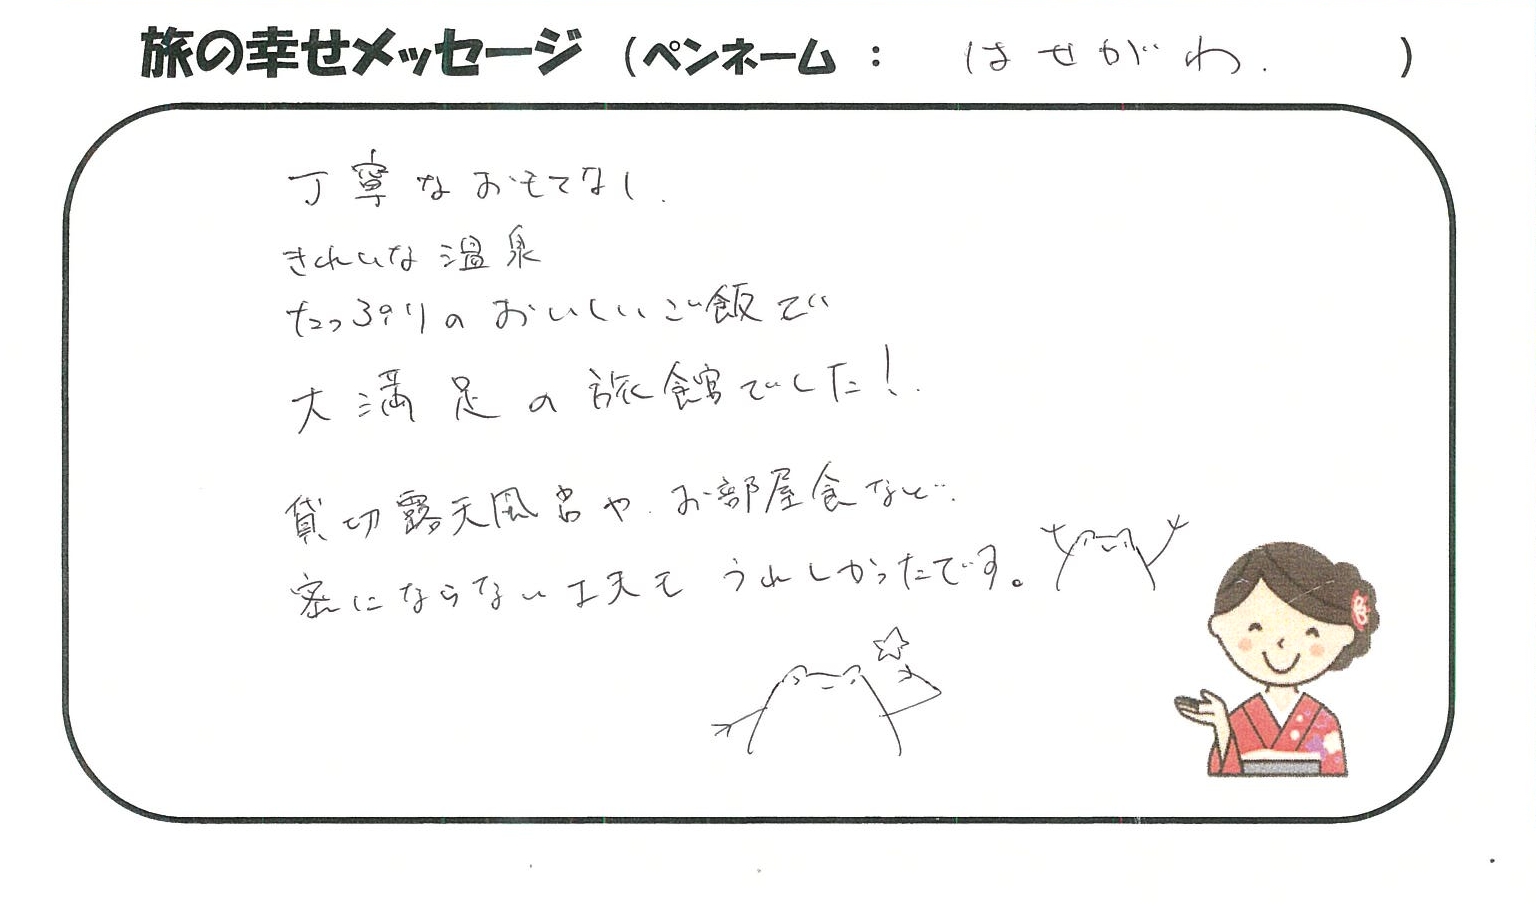 旅の幸せメッセージ (ペンネーム : はせがわ. )
丁寧なおもてなし.
きれいな温泉
たっぷりのおいしいご飯で
大満足の旅館でした!.
貸切露天風呂や.お部屋食など.
密にならない工夫もうれしかったです。